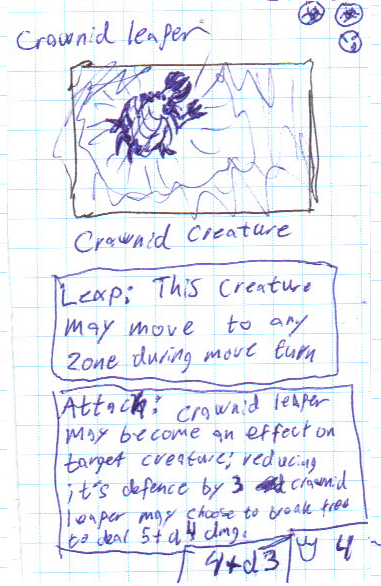 Crawnid leaper
Crawnid Creature
Leap: This Creature
may move to any
zone during move turn
Attack: Crawnid leaper
may become an effect on
target creature; reducing
it's defence by 3 crawnid
leaper may choose to break free
to deal 5+d4 dmg.
4+d3
4